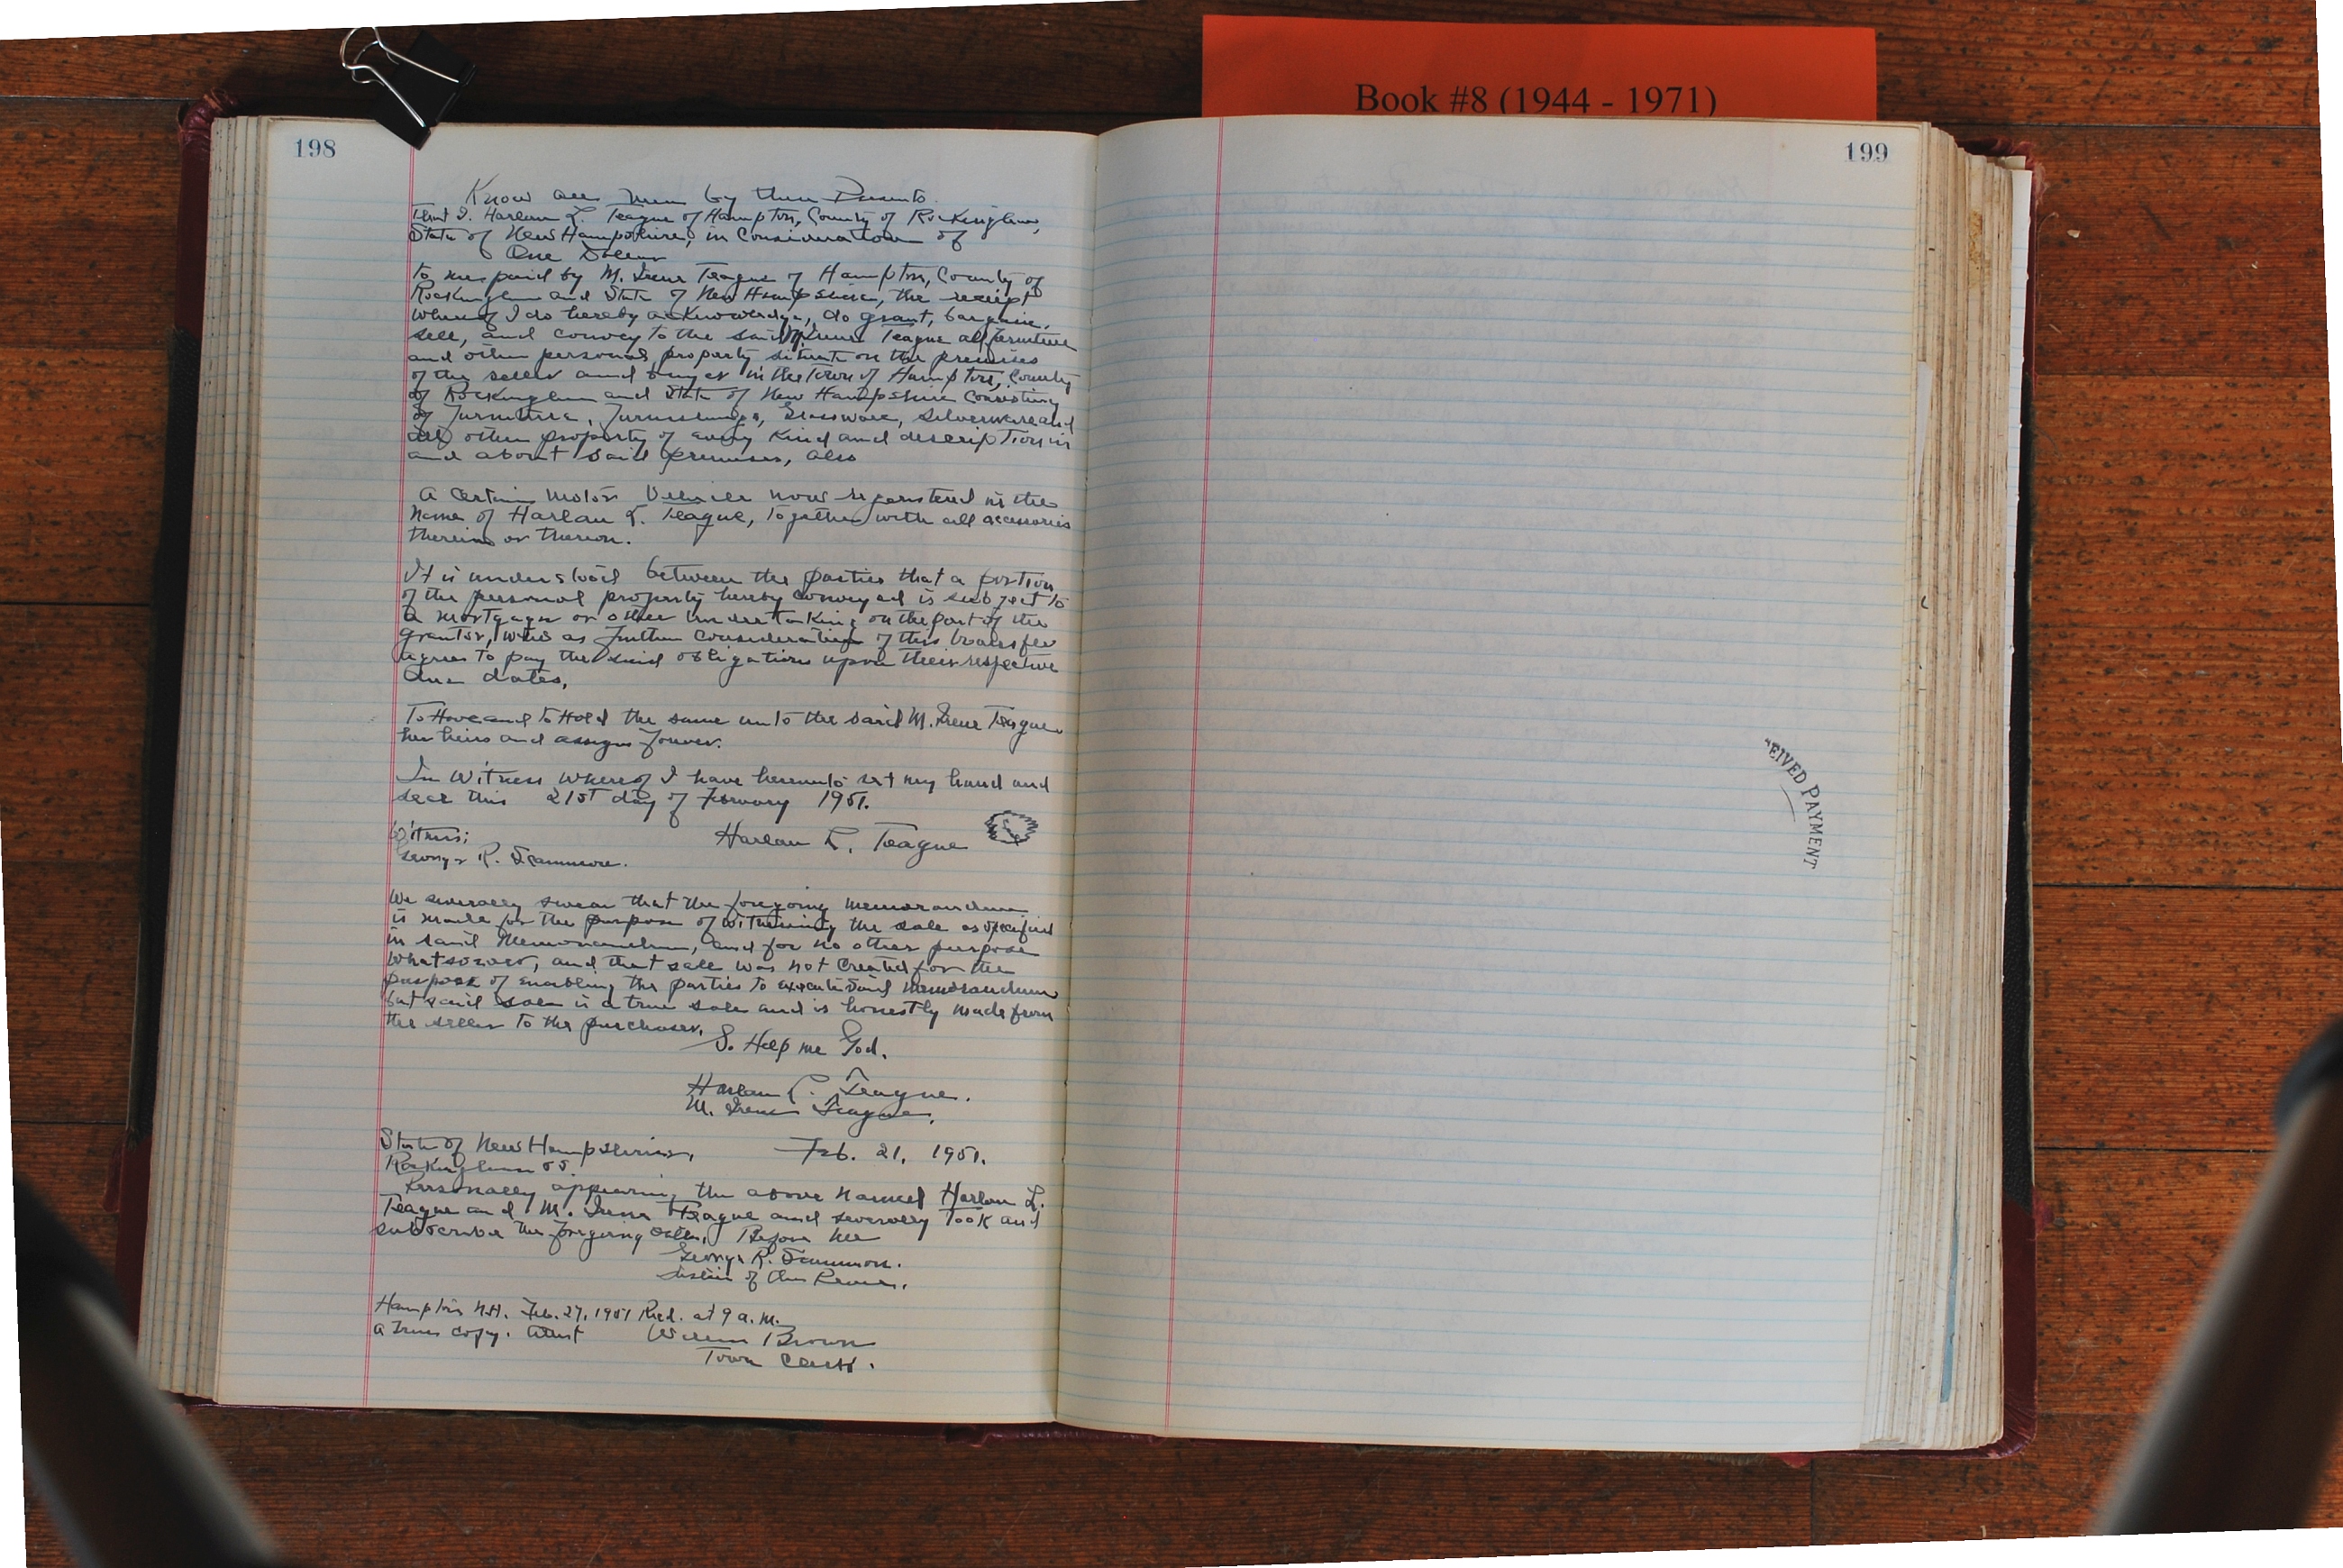 Book #8 (1944 - 1971)
198
Know all men by these Presents
That I. Harlan L. Teague of Hampton, County of Rockingham,
State of New Hampshire, in Consideration of
One Dollar
to me paid by M. Irene Teague of Hampton, County of
Rockingham and State of New Hampshire, the receipt
whereof I do hereby acknowledge, do grant, bargain,
sell, and convey to the said M. Irene Teague all furniture
and other personal property situate on the premises
of the seller and buyer in the Town of Hampton, County
of Rockingham and State of New Hampshire Consisting
of Furniture, Furnishings, Glassware, Silverware and
all other property of every kind and description in
and about said premises, also
A certain Motor Vehicle now registered in the
name of Harlan L. Teague, Together with all accessories
therein or thereon.
It is understood between the parties that a portion
of the personal property hereby conveyed is subject to
a mortgage or other undertaking on the part of the
grantor, who as further consideration of this transfer
agrees to pay the said obligations upon their respective
due dates,
To Have and to Hold the same unto the said M. Irene Teague
her heirs and assigns forever.
In Witness whereof I have hereunto set my hand and
seal this 21st day of February 1951.
Witness;
Harlan L. Teague
George R. Scammon.
We severally swear that the foregoing memorandum
is made for the purpose of witnessing the sale as specified
in said Memorandum, and for no other purpose
whatsoever, and that sale was not created for the
purpose of enabling the parties to execute said memorandum
but said sale is a true sale and is honestly made from
the seller to the purchaser.
So Help me God.
Harlan L. Teague.
M. Irene Teague.
State of New Hampshire, Feb. 21, 1951.
Rockingham ss.
Personally appearing the above named Harlan L.
Teague and M. Irene Teague and severally Took and
subscribe the foregoing oath, Before me
George R. Scammon.
Justice of the Peace.
Hampton N.H. Feb. 27, 1951 Recd. at 9 a.m.
A True copy. Attest William Brown
Town Clerk.
199
EIVED PAYMENT